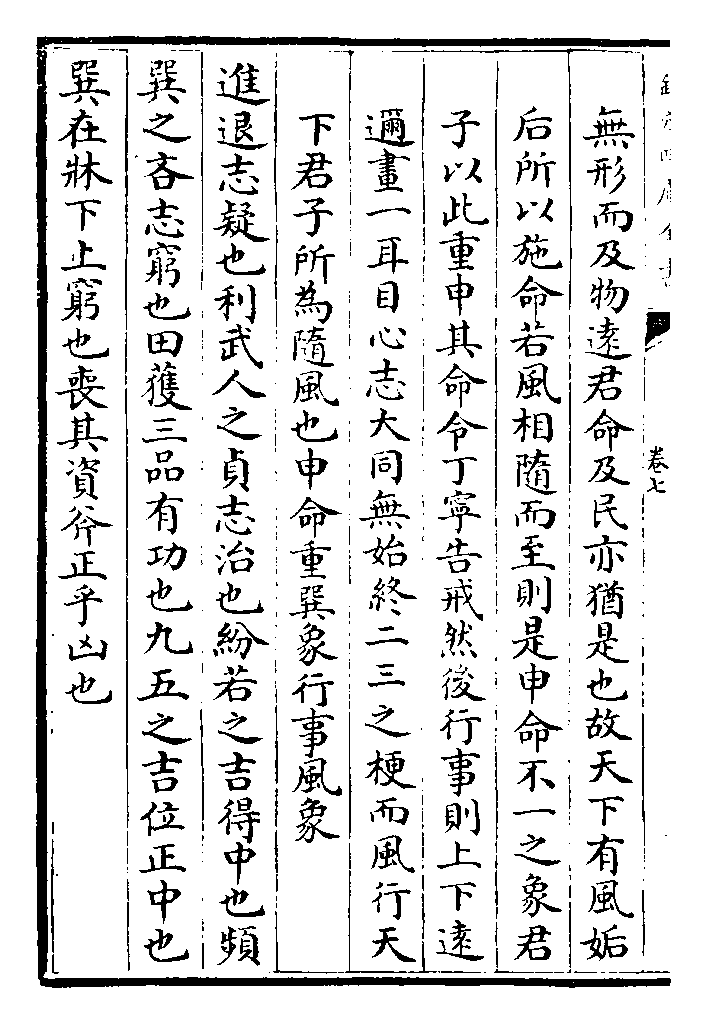 欽定四庫全書
卷七
無形而及物遠君命及民亦猶是也故天下有風姤
后所以施命若風相隨而至則是申命不一之象君
子以此重申其命令丁寧告戒然後行事則上下遠
邇晝一耳目心志大同無始終二三之梗而風行天
下君子所為隨風也申命重巽象行事風象
進退志疑也利武人之貞志治也紛若之吉得中也頻
巽之吝志窮也田獲三品有功也九五之吉位正中也
巽在牀下上窮也喪其資斧正乎凶也